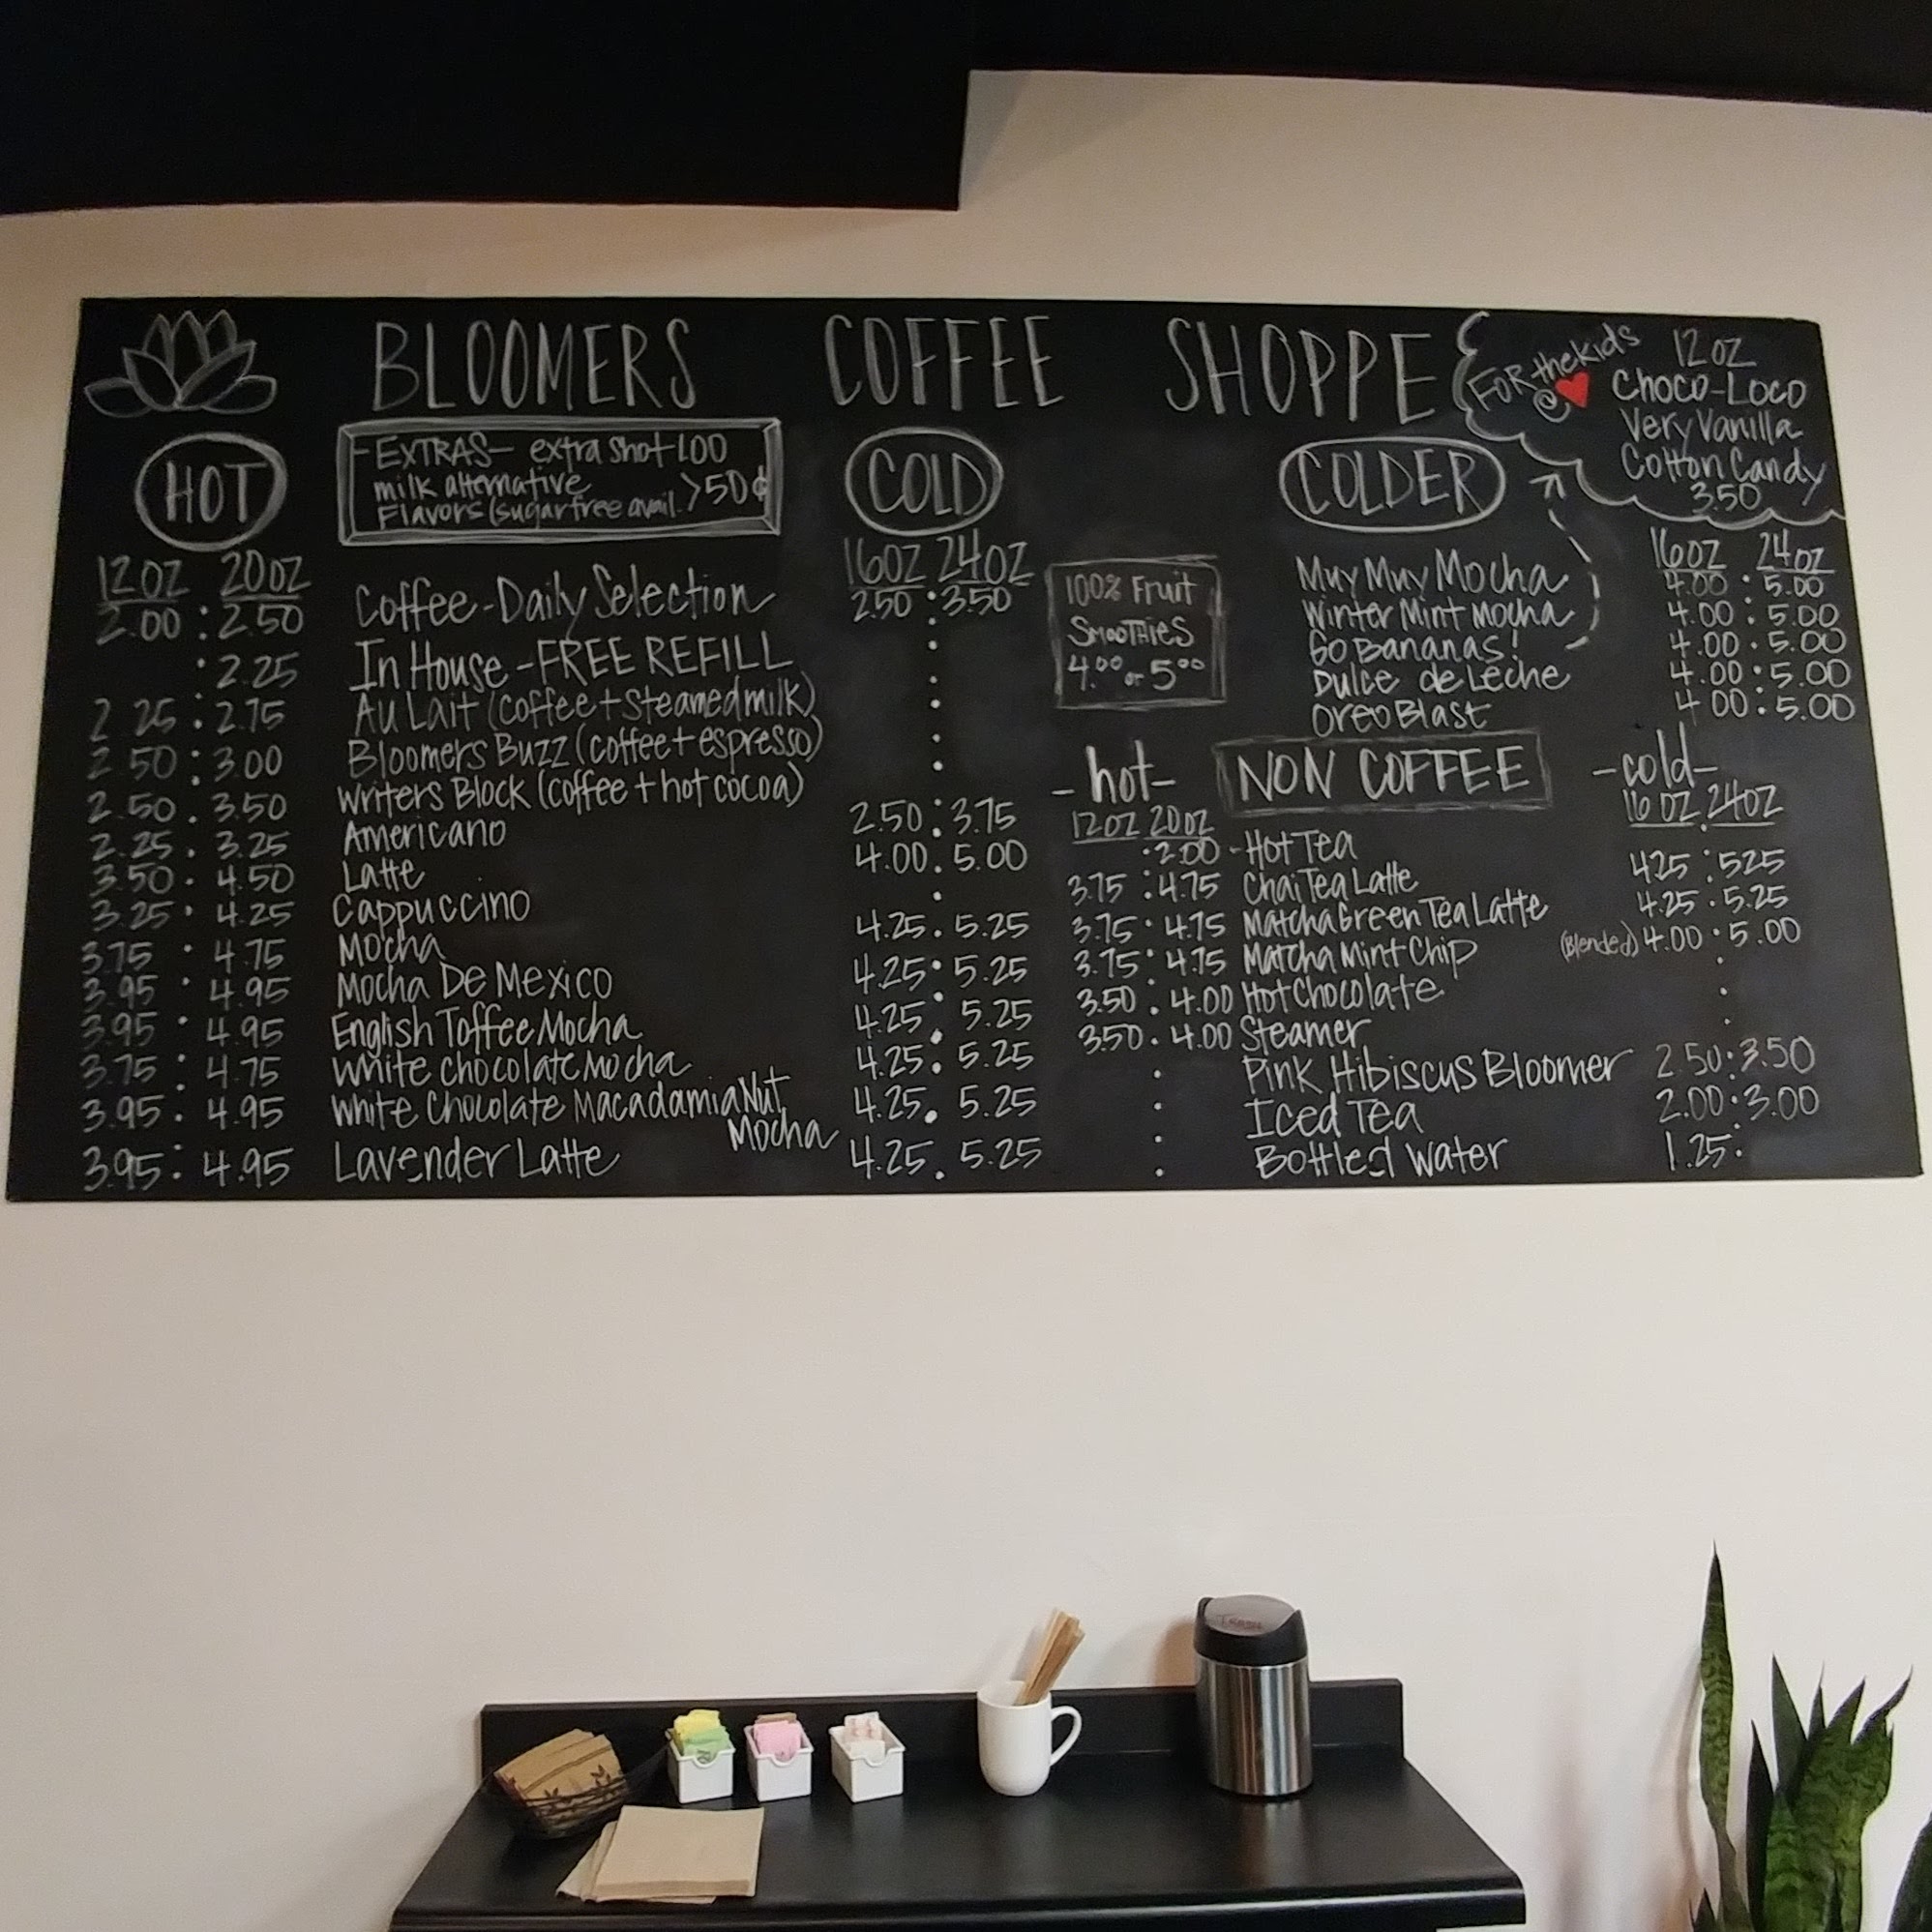 BLOOMERS COFFEE SHOPPE
FOR the kids
@ ♥
12oz
Choco-Loco
Very Vanilla
Cotton Candy
3.50
HOT
EXTRAS- extra shot-1.00
milk alternative
Flavors (sugar free avail. >50¢
COLD
COLDER
12oz 20oz
16oz 24oz
2.00 : 2.50 Coffee-Daily Selection 2.50 : 3.50
2.25 In House -FREE REFILL
2.25 : 2.75 Au Lait (coffee + steamed milk)
2.50 : 3.00 Bloomers Buzz (coffee + espresso)
2.50 . 3.50 Writers Block (coffee + hot cocoa)
2.25 : 3.25 Americano 2.50 : 3.75
3.50 . 4.50 Latte 4.00 . 5.00
3.25 . 4.25 Cappuccino
3.75 . 4.75 Mocha 4.25 . 5.25
3.95 . 4.95 Mocha De Mexico 4.25 . 5.25
3.95 . 4.95 English Toffee Mocha 4.25 . 5.25
3.75 : 4.75 White Chocolate Mocha 4.25 . 5.25
3.95 . 4.95 White Chocolate Macadamia Nut 4.25 . 5.25
Mocha
3.95 : 4.95 Lavender Latte 4.25 . 5.25
100% Fruit
Smoothies
4.00 or 5.00
16oz 24oz
Muy Muy Mocha 4.00 : 5.00
Winter Mint Mocha 4.00 : 5.00
Go Bananas! 4.00 . 5.00
Dulce de Leche 4.00 : 5.00
Oreo Blast 4.00 : 5.00
-hot- NON COFFEE -cold-
12oz 20oz
16oz 24oz
2.00 - Hot Tea
3.75 : 4.75 Chai Tea Latte 4.25 : 5.25
3.75 . 4.75 Matcha Green Tea Latte 4.25 . 5.25
3.75 . 4.75 Matcha Mint Chip (Blended) 4.00 . 5.00
3.50 . 4.00 Hot Chocolate
3.50 . 4.00 Steamer
Pink Hibiscus Bloomer 2.50 : 3.50
Iced Tea 2.00 . 3.00
Bottled Water 1.25
Trash